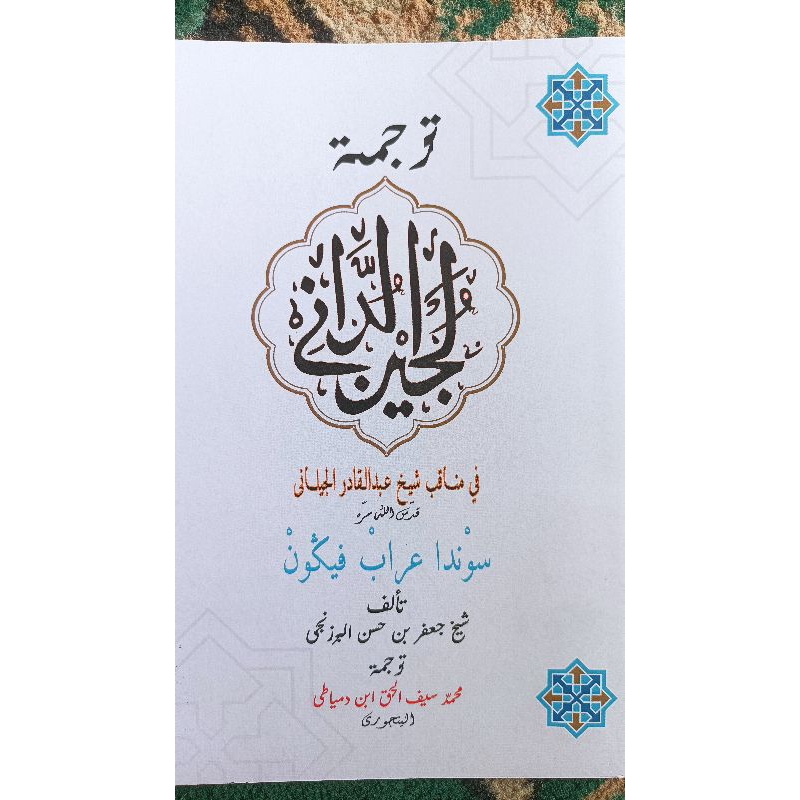 ترجمة
لجين الداني
في مناقب شيخ عبدالقادر الجيلاني
قدس الله سره
سوْندا عرابْ فيڬونْ
تأليف
شيخ جعفر بن حسن البرزنجي
ترجمة
محمد سيف الحق ابن دمياطي